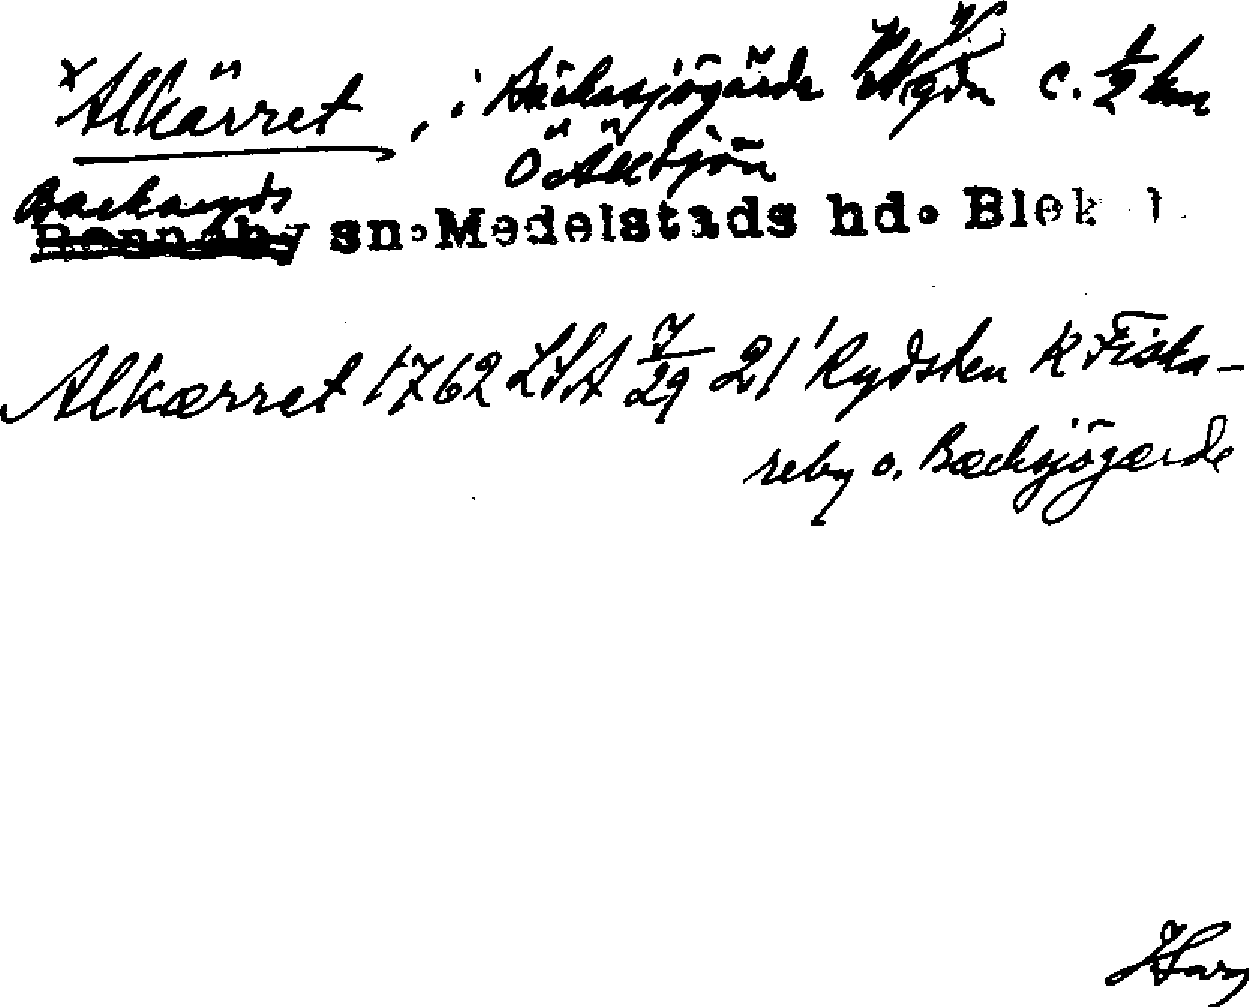 x Alkärret, i Bäcksjögärde c. 1/2 km
Ö. Älsjön
Backaryds
Ronneby sn. Medelstads hd. Blek. l.
Alkærret 1762 LSA 7/29 21 Rydsten k Fiska-
reby o. Bæcksjögærde